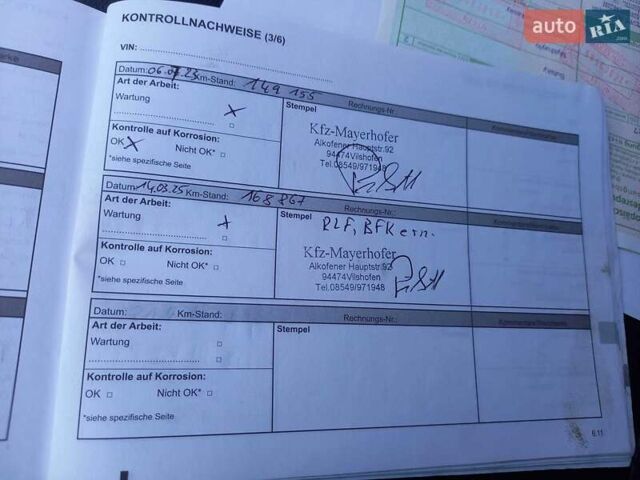 KONTROLLNACHWEISE (3/6)
VIN:
Datum: 06.07.23 Km-Stand: 149 155 Rechnungs-Nr.
Art der Arbeit:
Stempel
Wartung
x
Kfz-Mayerhofer
Alkofener Hauptstr.92
94474Vilshofen
Tel.08549/971948
Kontrolle auf Korrosion:
OK x Nicht OK*
*siehe spezifische Seite
Datum: 14.03.25 Km-Stand: 168 867 Rechnungs-Nr.:
Art der Arbeit:
Stempel
Wartung
x
BLF, BFK ern.
Kfz-Mayerhofer
Alkofener Hauptstr.92
94474Vilshofen
Tel.08549/971948
Kontrolle auf Korrosion:
OK Nicht OK*
*siehe spezifische Seite
Datum: Km-Stand: Rechnungs-Nr.: Kommentare/Stempel
Art der Arbeit:
Stempel
Wartung
Kontrolle auf Korrosion:
OK Nicht OK*
*siehe spezifische Seite
6.11
auto RIA .com